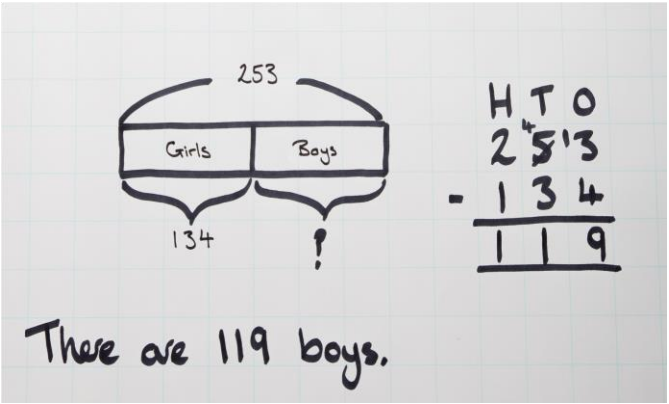 253
Girls Boys
134 ?
H T O
2 5 13
4
- 1 3 4
1 1 9
There are 119 boys.